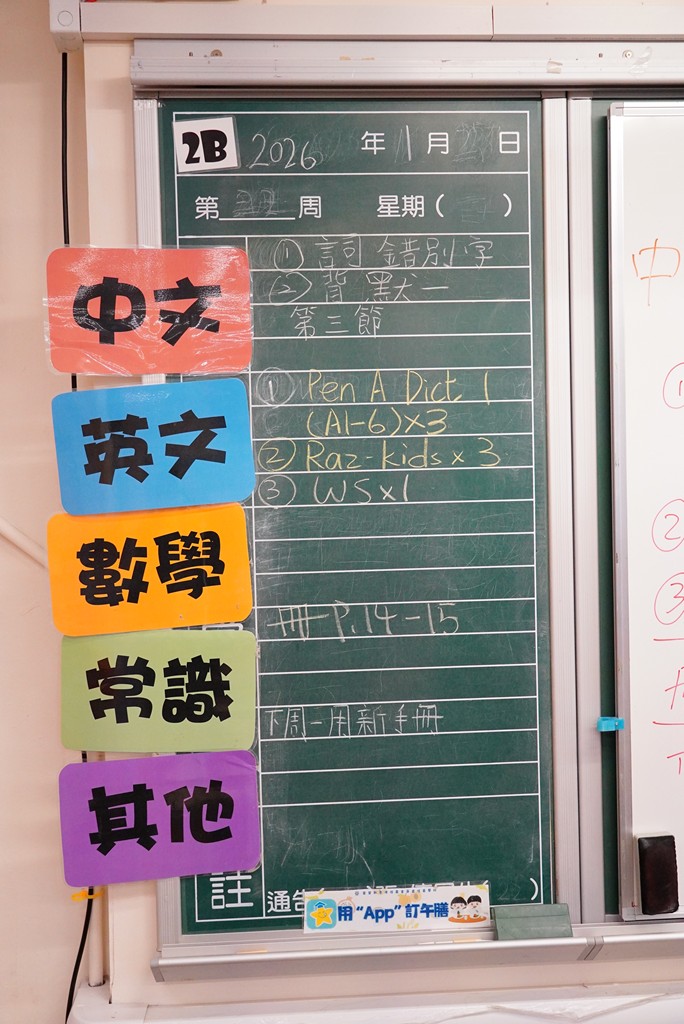 2B 2026 年 1 月 日
第 周 星期( )
中文
① 詞 錯別字
② 背 默一
第三節
英文
① Pen A Dict. 1
(A1-6)×3
② Raz-kids × 3
③ WS×1
數學
冊一 P.14-15
常識
下周一用新手冊
其他
註
通告( )
用 “App” 訂午膳
中
①
②
③